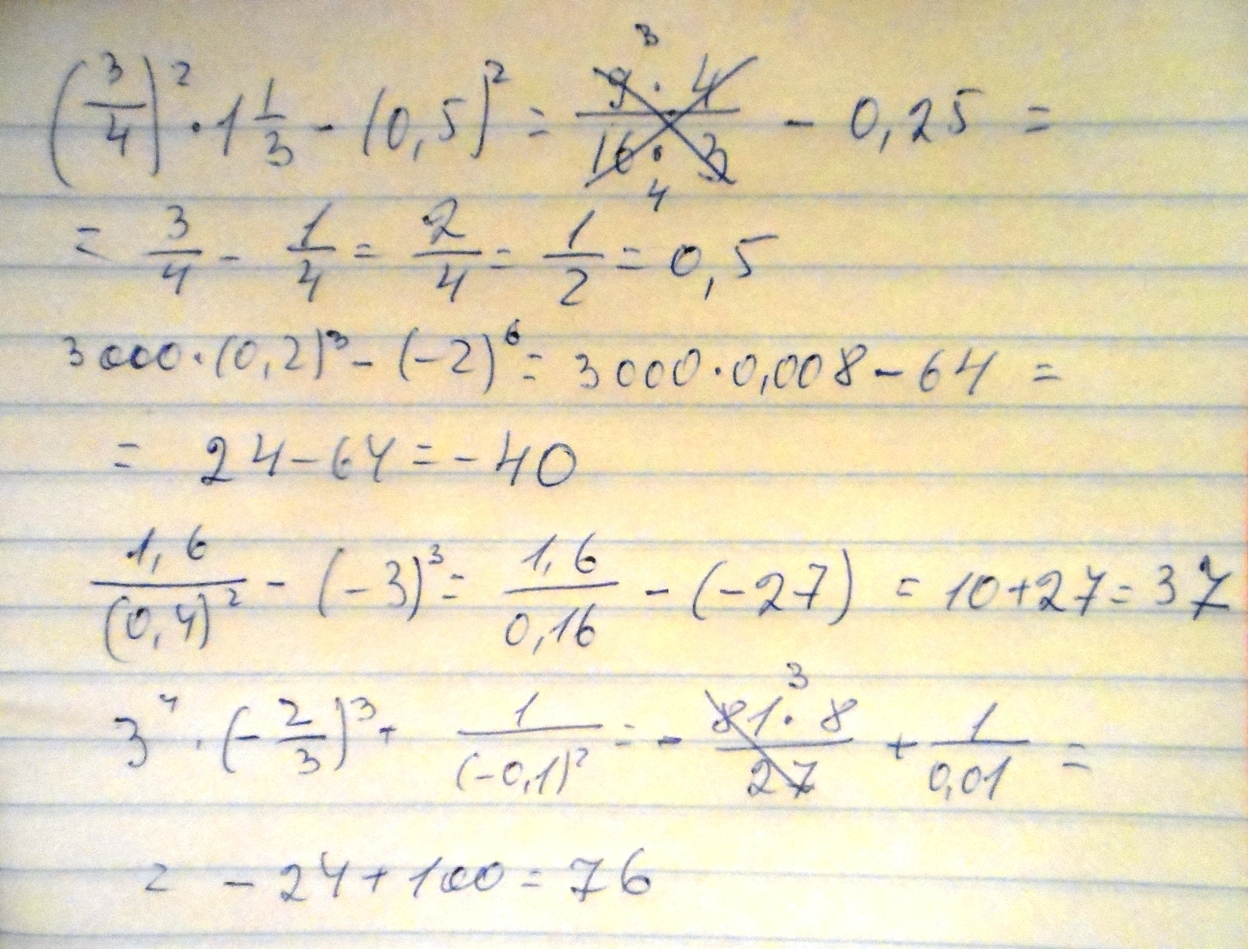 (3/4)² · 1 1/3 - (0,5)² = 9 · 4 / 16 · 3 (3, 4) - 0,25 =
= 3/4 - 1/4 = 2/4 = 1/2 = 0,5
3000 · (0,2)³ - (-2)⁶ = 3000 · 0,008 - 64 =
= 24 - 64 = -40
1,6/(0,4)² - (-3)³ = 1,6/0,16 - (-27) = 10 + 27 = 37
3⁴ · (-2/3)³ + 1/(-0,1)² = - 81 · 8 / 27 (3) + 1/0,01 =
= -24 + 100 = 76